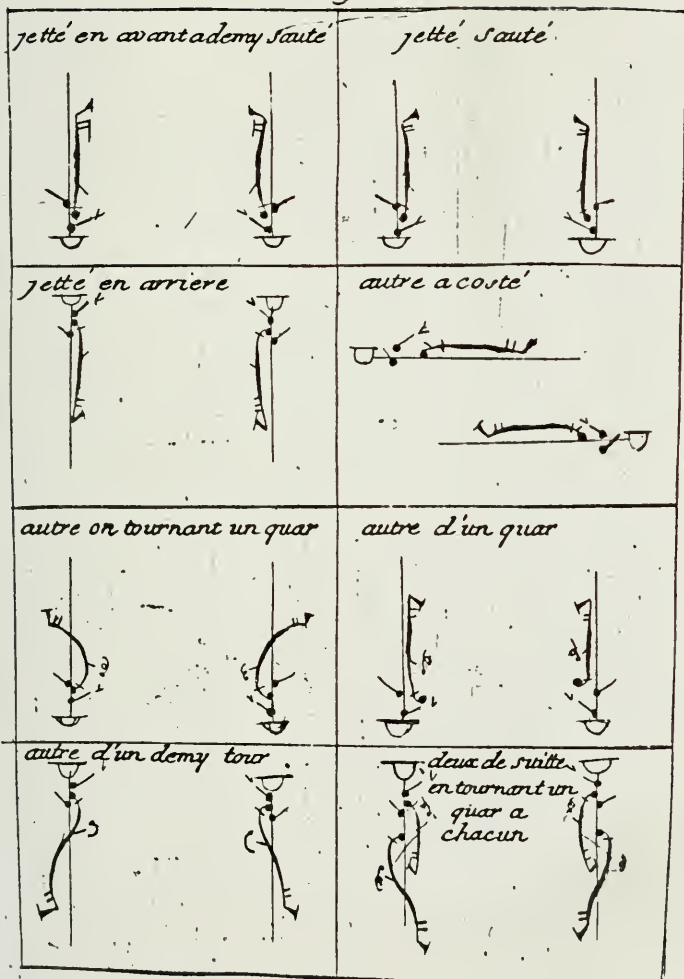 jetté en avant a demy sauté
jetté sauté
jetté en arriere
autre a costé
autre on tournant un quar
autre d'un quar
autre d'un demy tour
deux de suitte
en tournant un
quar a
chacun